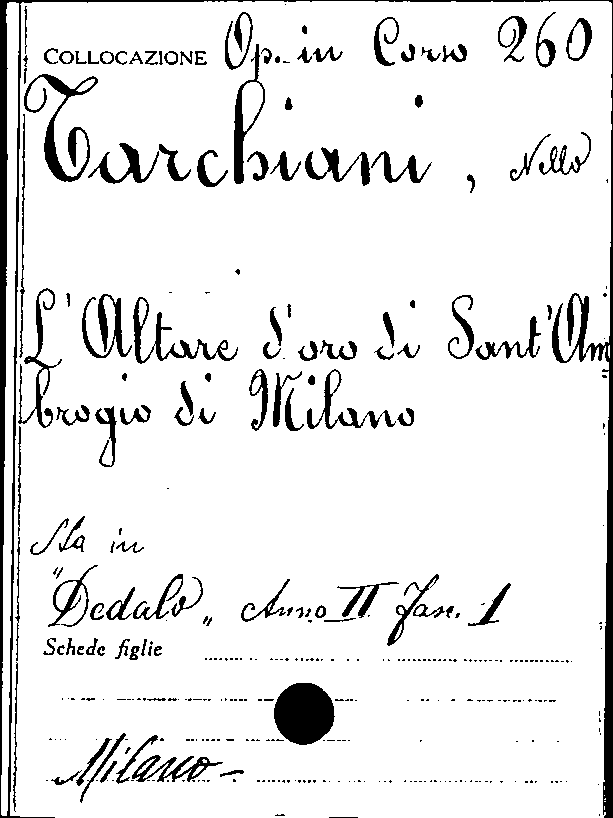 COLLOCAZIONE Op. in Corso 260
Tarchiani, Nello
L'Altare d'oro di Sant'Am
brogio di Milano
Sta in
"Dedalo„ Anno II Fasc. 1
Schede figlie
Milano -